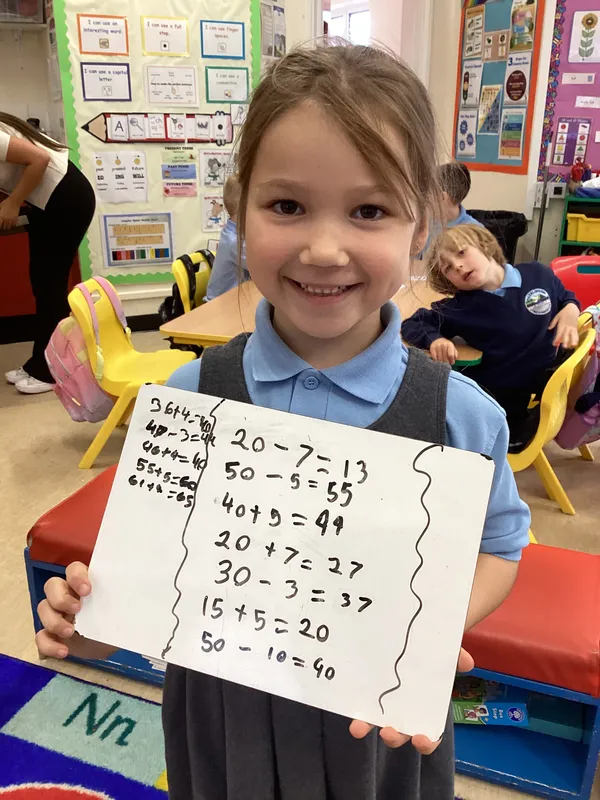 I can use an interesting word.
I can use a full stop.
I can use finger spaces.
I can use a capital letter.
I can use a
A
PRESENT TENSE
PAST TENSE
FUTURE TENSE
past present future
ED ING WILL
36+4=40
- 3=44
46+4=40
55+5=60
61+4=65
20 - 7 = 13
50 - 5 = 55
40+9 = 49
20 + 7 = 27
30 - 3 = 37
15 + 5 = 20
50 - 10 = 40
Nn